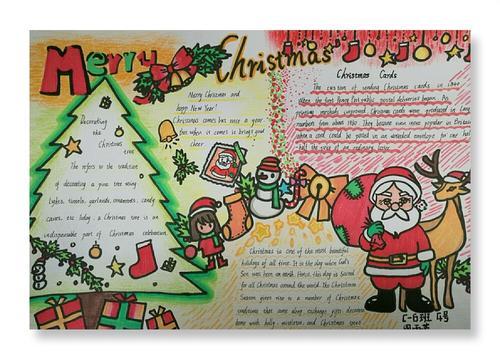 Merry Christmas
Decorating
the
Christmas
tree
The refers to the tradition
of decorating a pine tree using
lights, tinsels, garlands, ornaments, candy
canes, etc. today, a Christmas tree is an
indispensable part of Christmas celebration.
Merry Christmas and
happy New Year!
Christmas comes but once a year
but when it comes it brings good
cheer
Christmas Cards
The custom of sending Christmas cards in 1840
when the first "Penny Post" public postal deliveries began. As
printing methods improved Christmas cards were produced in large
numbers from about 1860. They became even more popular in Britain
when a card could be posted in an unsealed envelope for one half-
half the price of an ordinary letter.
Christmas is one of the most beautiful
holidays of all time. It is the day when God's
Son was born on earth. Hence, this day is sacred
for all Christians around the world. The Christmas
Season gives rise to a number of Christmas
traditions that some day, exchange gifts, decorate
home with holly, mistletoe, and Christmas trees
C-6班 4号